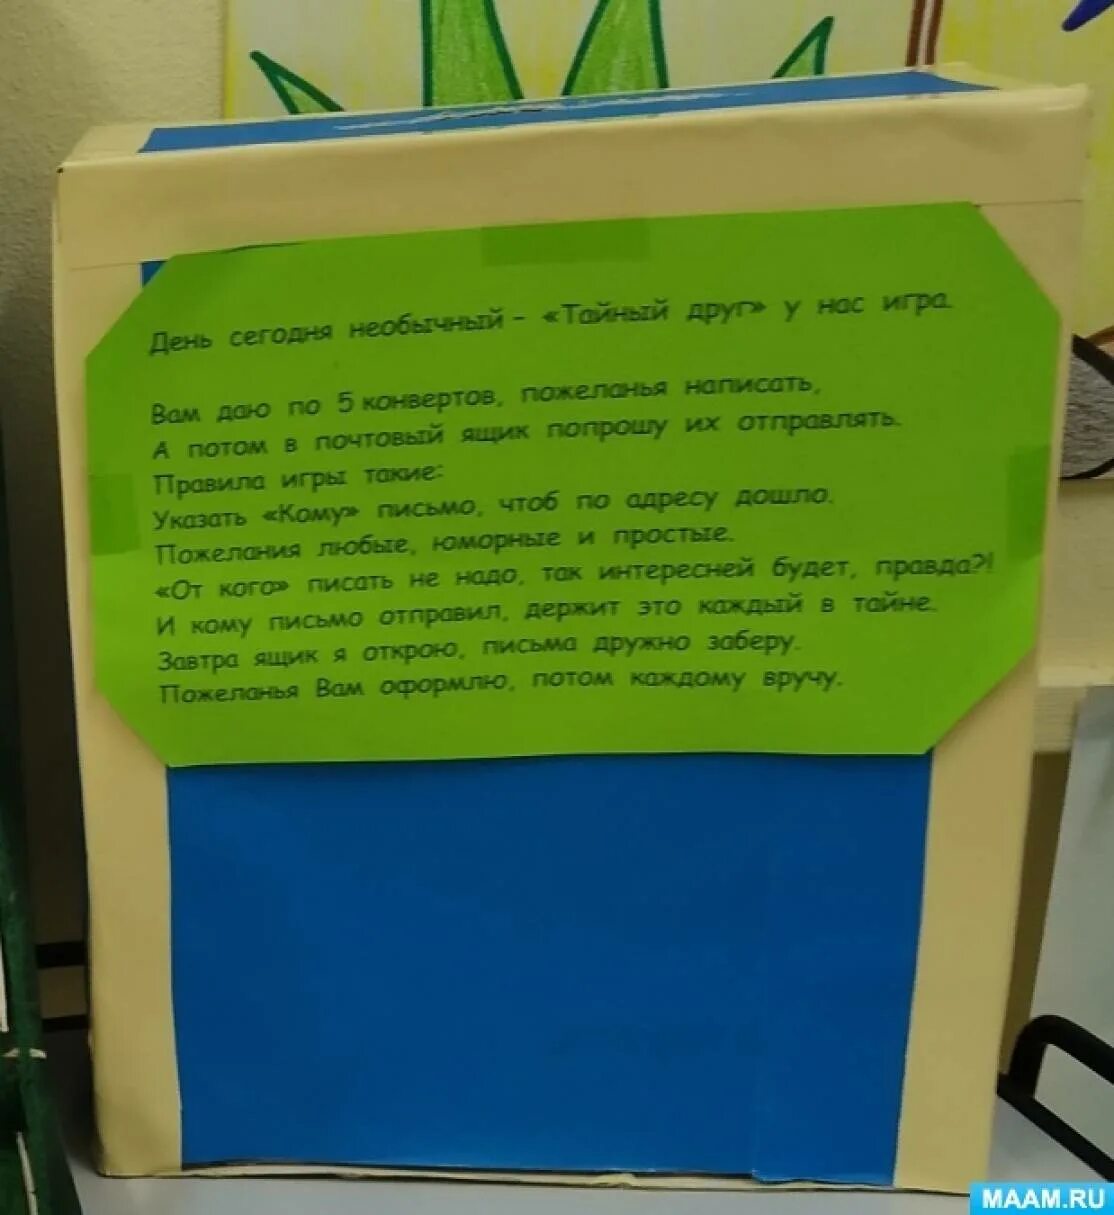 День сегодня необычный - «Тайный друг» у нас игра.
Вам даю по 5 конвертов, пожеланья написать,
А потом в почтовый ящик попрошу их отправлять.
Правила игры такие:
Указать «Кому» письмо, чтоб по адресу дошло.
Пожелания любые, юморные и простые.
«От кого» писать не надо, так интересней будет, правда?!
И кому письмо отправил, держит это каждый в тайне.
Завтра ящик я открою, письма дружно заберу.
Пожеланья Вам оформлю, потом каждому вручу.
MAAM.RU